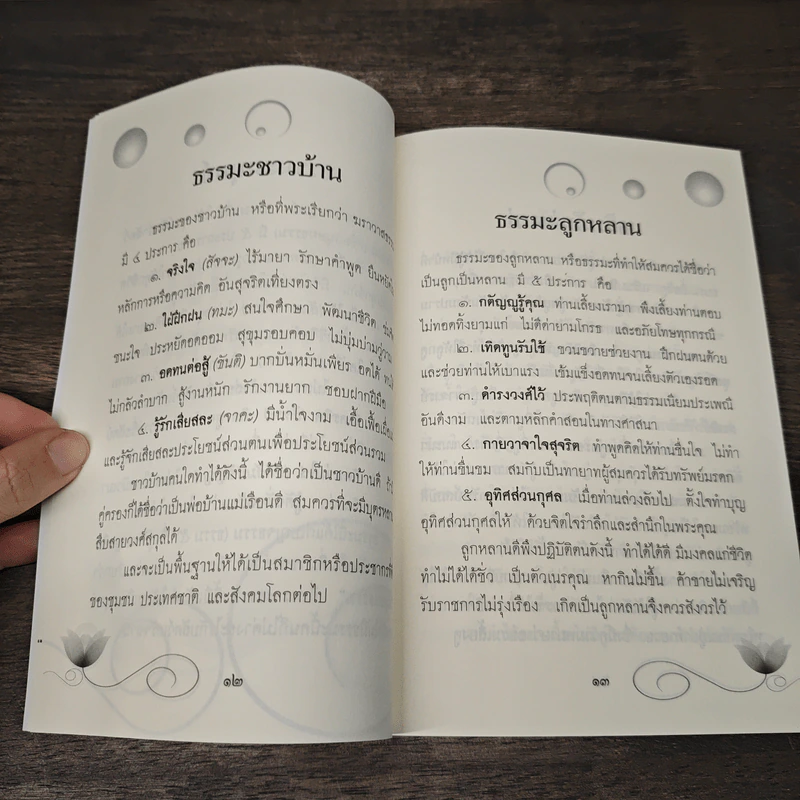 ธรรมะชาวบ้าน
ธรรมะของชาวบ้าน หรือที่พระเรียกว่า
มี ๔ ประการ คือ
๑. จริงใจ (สัจจะ) ไร้มายา รักษาคำพูด
หลักการหรือความคิด อันสุจริตเที่ยงตรง
๒. ใฝ่ฝึกฝน (ทมะ) สนใจศึกษา พัฒนาชีวิต
ชนะใจ ประหยัดอดออม สุขุมรอบคอบ ไม่บุ่มบ่าม
๓. อดทนต่อสู้ (ขันติ) บากบั่นหมั่นเพียร อดได้
ไม่กลัวลำบาก สู้งานหนัก รักงานยาก ชอบฝากฝีมือ
๔. รู้รักเสียสละ (จาคะ) มีน้ำใจงาม
และรู้จักเสียสละประโยชน์ส่วนตนเพื่อประโยชน์ส่วนรวม
ชาวบ้านคนใดทำได้ดังนี้ ได้ชื่อว่าเป็นชาวบ้านดี
คู่ครองก็ได้ชื่อว่าเป็นพ่อบ้านแม่เรือนดี สมควรที่จะมีบุตรหลาน
สืบสายวงศ์สกุลได้
และจะเป็นพื้นฐานให้ได้เป็นสมาชิกหรือประชากรที่ดี
ของชุมชน ประเทศชาติ และสังคมโลกต่อไป
๑๒
ธรรมะลูกหลาน
ธรรมะของลูกหลาน หรือธรรมะที่ทำให้สมควรได้ชื่อว่า
เป็นลูกเป็นหลาน มี ๕ ประการ คือ
๑. กตัญญูรู้คุณ ท่านเลี้ยงเรามา พึงเลี้ยงท่านตอบ
ไม่ทอดทิ้งยามแก่ ไม่ตีด่ายามโกรธ และอภัยโทษทุกกรณี
๒. เทิดทูนรับใช้ ขวนขวายช่วยงาน ฝึกฝนตนด้วย
และช่วยท่านให้เบาแรง เข้มแข็งอดทนจนเลี้ยงตัวเองรอด
๓. ดำรงวงศ์ไว้ ประพฤติตนตามธรรมเนียมประเพณี
อันดีงาม และตามหลักคำสอนในทางศาสนา
๔. กายวาจาใจสุจริต ทำพูดคิดให้ท่านชื่นใจ ไม่ทำ
ให้ท่านขื่นขม สมกับเป็นทายาทผู้สมควรได้รับทรัพย์มรดก
๕. อุทิศส่วนกุศล เมื่อท่านล่วงลับไป ตั้งใจทำบุญ
อุทิศส่วนกุศลให้ ด้วยจิตใจรำลึกและสำนึกในพระคุณ
ลูกหลานดีพึงปฏิบัติตนดังนี้ ทำได้ได้ดี มีมงคลแก่ชีวิต
ทำไม่ได้ได้ชั่ว เป็นตัวเนรคุณ หากินไม่ขึ้น ค้าขายไม่เจริญ
รับราชการไม่รุ่งเรือง เกิดเป็นลูกหลานจึงควรสังวรไว้
๑๓